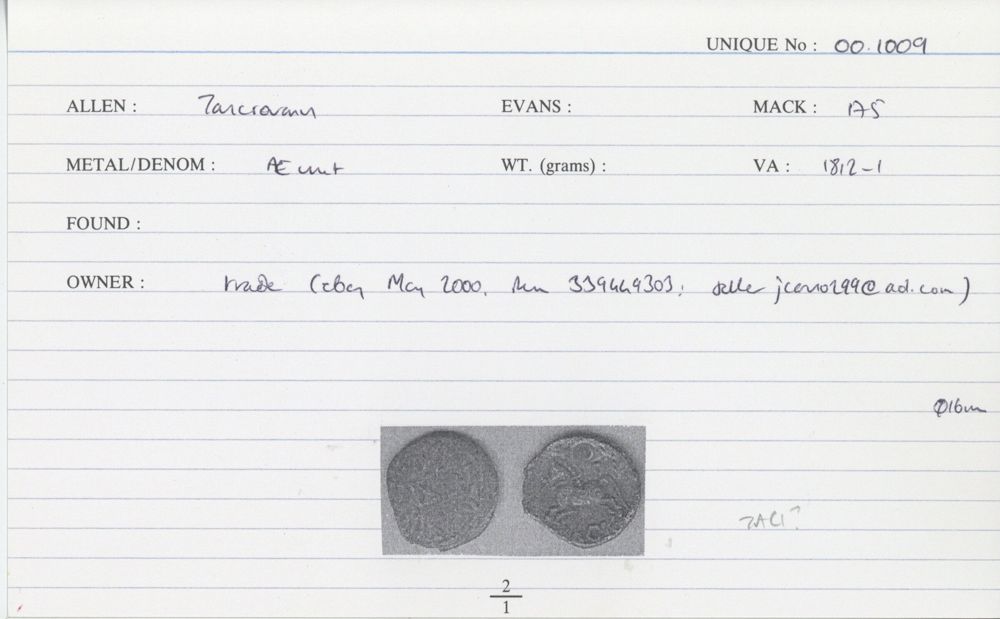 UNIQUE No : 00.1009
ALLEN : Tasciovanus EVANS : MACK : 175
METAL/DENOM : Æ unit WT. (grams) : VA : 1812-1
FOUND :
OWNER : trade (ebay May 2000, item 339449303; seller @aol.com)
Ø16mm
2
1